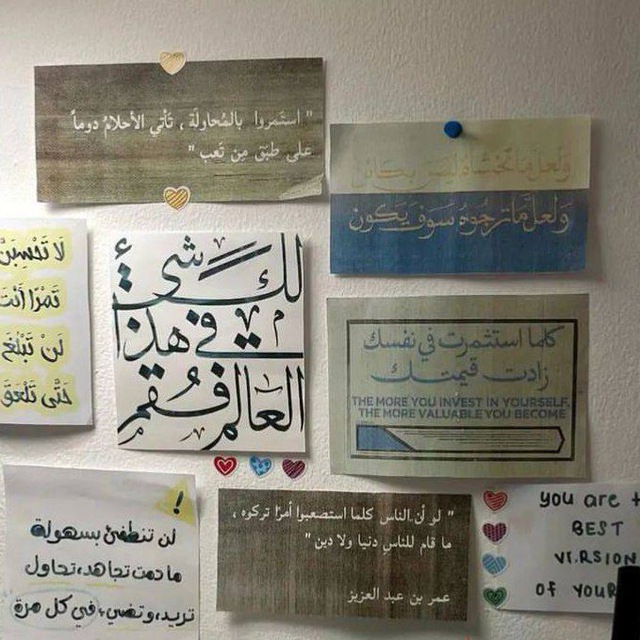 " استمروا بالمُحاولة ، تأتي الأحلامُ دوماً
على طبَق مِن تَعب "
ولعل ما تخشاه ليس بكائن
ولعل ما ترجوه سوف يكون
لا تَحْسَبَنَّ
تَمْرًا أنْتَ
لَنْ تَبْلُغَ
حَتَّى تَلْعَقَ
لك شيء
في هذا
العالم فقم
كلما استثمرت في نفسك
زادت قيمتك
THE MORE YOU INVEST IN YOURSELF,
THE MORE VALUABLE YOU BECOME
!
لن تنطفئ بسهولة
ما دمت تجاهد، تحاول
تريد، وتضيء في كل مرة
" لو أن الناس كلما استصعبوا أمرًا تركوه ،
ما قام للناس دنيا ولا دين "
عمر بن عبد العزيز
you are
BEST
VERSION
OF YOUR